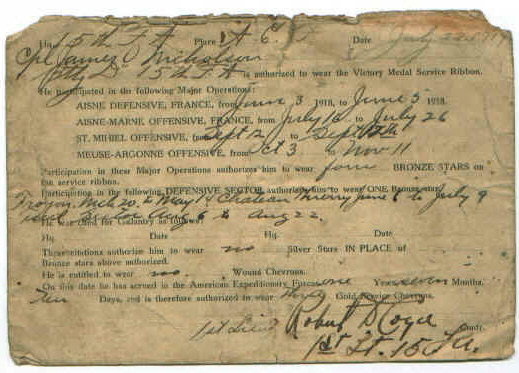 Hq. 15th F A Place A. E. F. Date July 22nd 1919
Cpl James O Nicholson
Bty D 15th F.A. is authorized to wear the Victory Medal Service Ribbon.
He participated in the following Major Operations:
AISNE DEFENSIVE, FRANCE, from June 3 1918, to June 5 1918.
AISNE-MARNE OFFENSIVE, FRANCE, from July 18 to July 26
ST. MIHIEL OFFENSIVE, from Sept 12 to Sept
MEUSE-ARGONNE OFFENSIVE, from Oct 3 to Nov 11
Participation in these Major Operations authorizes him to wear four BRONZE STARS on
the service ribbon.
Participating in the following DEFENSIVE SECTOR authorizes him to wear ONE Bronze star.
Troyon, Mch 20 to May 14 Chateau Thierry June 6 to July 9
Sector Aug 6 to Aug 22.
He was cited for Galantry as follows:
Hq. Date Hq. Date
These citations authorize him to wear no Silver Stars IN PLACE of
Bronze stars above authorized.
He is entitled to wear no. Wound Chevrons.
On this date he has served in the American Expeditionary Forces one Years seven Months.
Ten Days, and is therefore authorized to wear three Gold Service Chevrons.
1st Lieut Robert D
1st Lt. 15 F.A. Comdr.